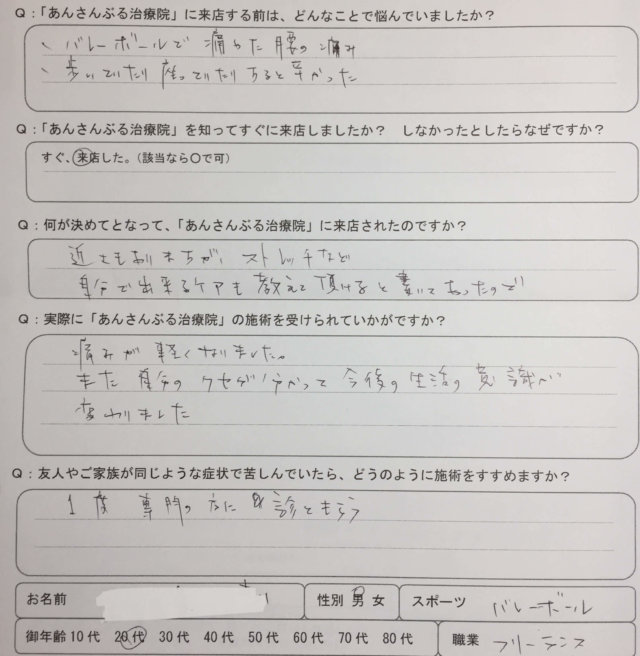 Q：「あんさんぶる治療院」に来店する前は、どんなことで悩んでいましたか？
、バレーボールで痛めた腰の痛み
、歩いていたり座っていたりすると辛かった
Q：「あんさんぶる治療院」を知ってすぐに来店しましたか？　しなかったとしたらなぜですか？
すぐ、来店した。（該当なら〇で可）
Q：何が決めてとなって、「あんさんぶる治療院」に来店されたのですか？
近さもありますが、ストレッチなど
自分で出来るケアも教えて頂けると書いてあったので
Q：実際に「あんさんぶる治療院」の施術を受けられていかがですか？
痛みが軽くなりました。
また自分のクセが分かって今後の生活の意識が
変わりました
Q：友人やご家族が同じような症状で苦しんでいたら、どうのように施術をすすめますか？
1度専門の方に診てもらう
お名前　性別 男 女　スポーツ　バレーボール
御年齢 10代　20代　30代　40代　50代　60代　70代　80代　職業　フリーランス